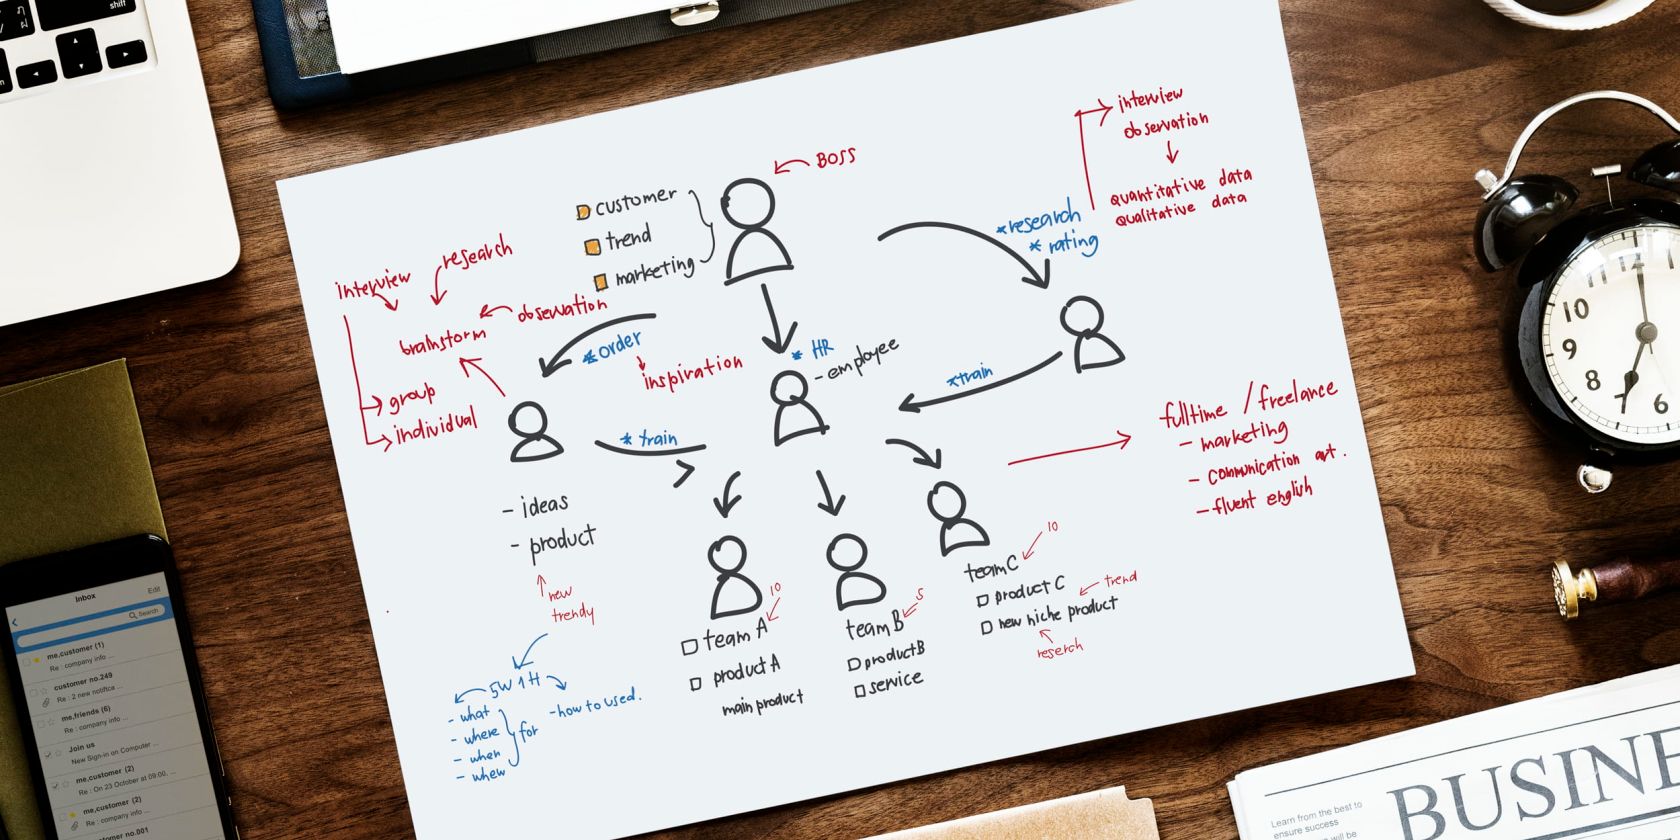 shift
BOSS
customer
trend
marketing
interview
observation
quantitative data
qualitative data
*research
* rating
research
interview
observation
brainstorm
group
individual
*order
inspiration
* HR
- employee
*train
* train
- ideas
- product
new
trendy
5W 1H
- what
- where
- when
- whew
for
-how to used.
fulltime / freelance
- marketing
- communication art.
- fluent english
10
team A
product A
main product
5
team B
product B
service
10
team C
product C
trend
new niche product
reserch
Inbox
Edit
Search
me,customer (1)
Re : company info ...
customer no.249
Re : 2 new notifica ...
me,friends (6)
Re : company info ...
Join us
New Sign-in on Computer ...
me,customer (2)
Re : On 23 October at 09:00, ...
me,customer (2)
Re : company info ...
customer no.001
11
12
10
9
8
7
6
BUSINE
Learn from the best to
ensure success
will be